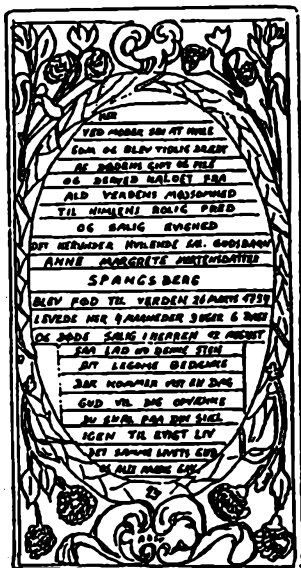 HER
VED MODER SIN AT HVILE
SOM OG BLEV TIDLIG DREBT
AF DØDENS GIFT OG PILE
OG DERVED KALDET FRA
ALD VERDENS MØJSOMHED
TIL HIMLENS ROLIG FRED
OG SALIG EVIGHED
DET HERUNDER HVILENDE SAL. GUDSBARN
ANNE MARGRETE MORTENSDATTER
SPANGSBERG
BLEV FØD TIL VERDEN 26 MARTS 1739
LEVEDE HER 4 MAANEDER 2 UGER 6 DAGE
OG DØDE SALIG I HERREN 12 AUGUST
SAA LAD DENNE STEN
DIT LEGOME BEDÆKKE
DER KOMMER VIST EN DAG
GUD VIL DIG OPVEKKE
DU SKAL FAA DIN SIEL
IGEN TIL EVIGT LIV
DET SAMME LIVETS GUD
OS ALLE